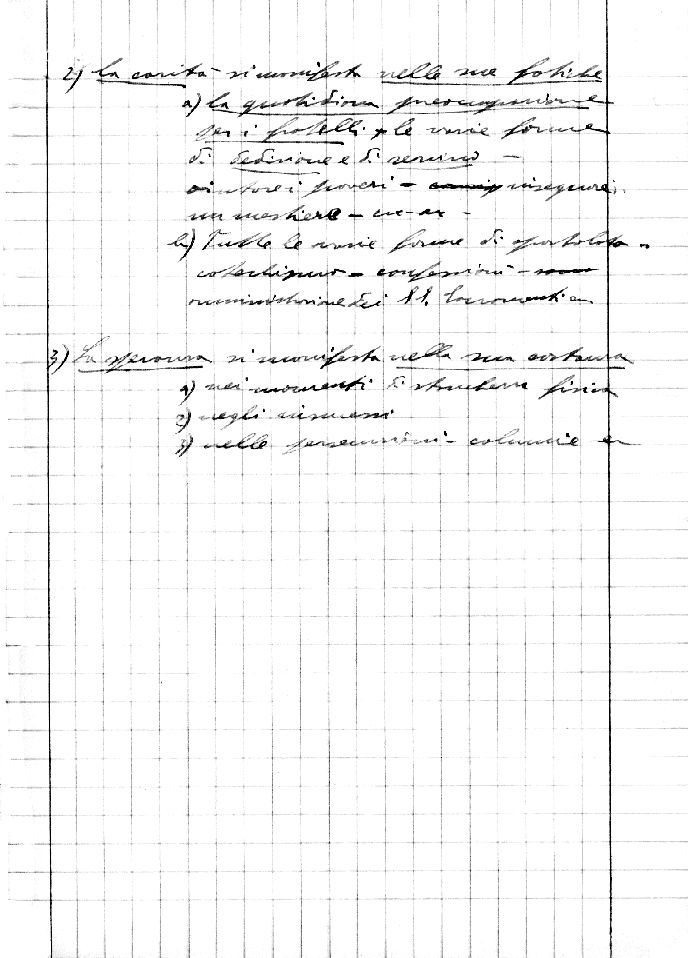 2) La carità si manifesta nelle sue fatiche
a) la quotidiana preoccupazione
per i fratelli e le varie forme
di dedizione e di servizio -
aiutare i poveri - insegnare
un mestiere - ecc -
b) Tutte le varie forme di apostolato -
catechismo - confessioni -
amministrazione dei SS. Sacramenti
3) La speranza si manifesta nella sua costanza
1) nei momenti di stanchezza fisica
2) negli insuccessi
3) nelle persecuzioni - calunnie ecc